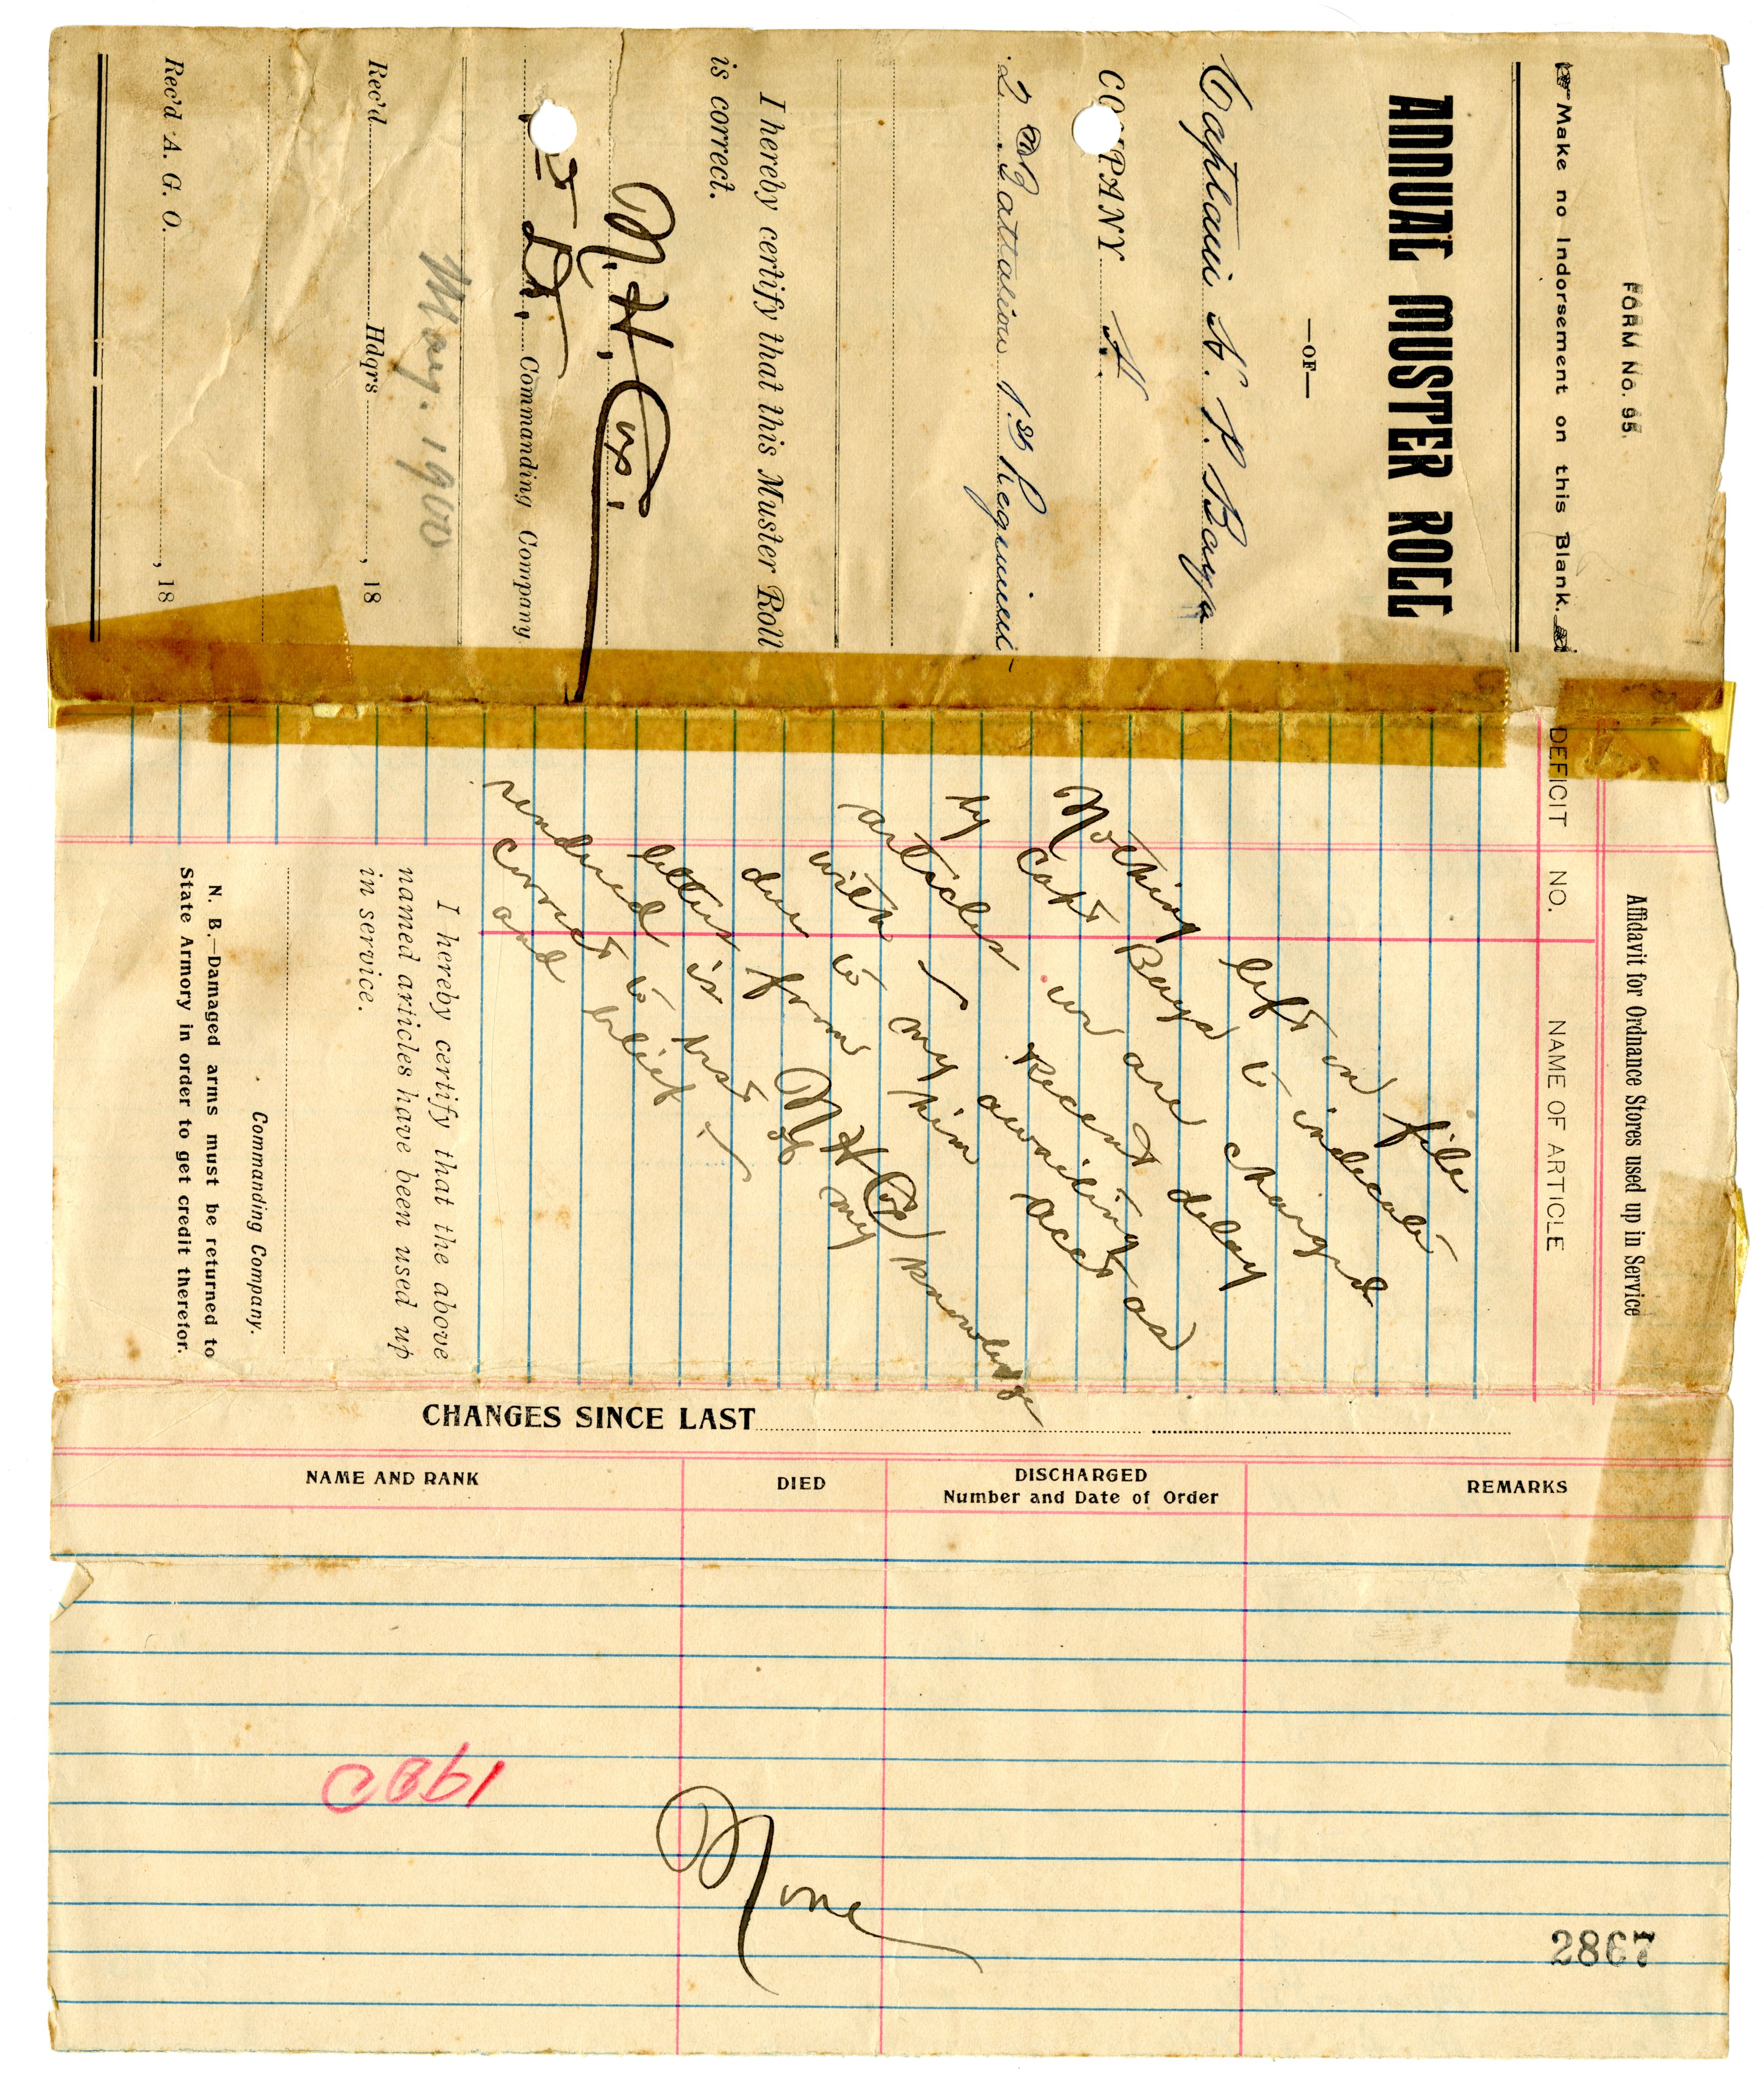 FORM No. 95.
Make no Indorsement on this Blank.
ANNUAL MUSTER ROLL
—OF—
Captain H. P. Baya
COMPANY A.
2nd Battalion 1st Regiment
I hereby certify that this Muster Roll
is correct.
M. H. Cox.
1st Lt. Commanding Company.
May. 1900
Rec'd Hdqrs , 18
Rec'd A. G. O. , 18
Affidavit for Ordnance Stores used up in Service
DEFICIT NO. NAME OF ARTICLE
Nothing left on file
by Capt Baya to indicate
articles we are charged
with – Recent delay
due to my awaiting as
letter from him acct as
rendered is M H Cox
correct to best of my knowledge
and belief –
I hereby certify that the above
named articles have been used up
in service.
Commanding Company.
N. B.—Damaged arms must be returned to
State Armory in order to get credit therefor.
CHANGES SINCE LAST
NAME AND RANK DIED DISCHARGED REMARKS
Number and Date of Order
1900
None
2867